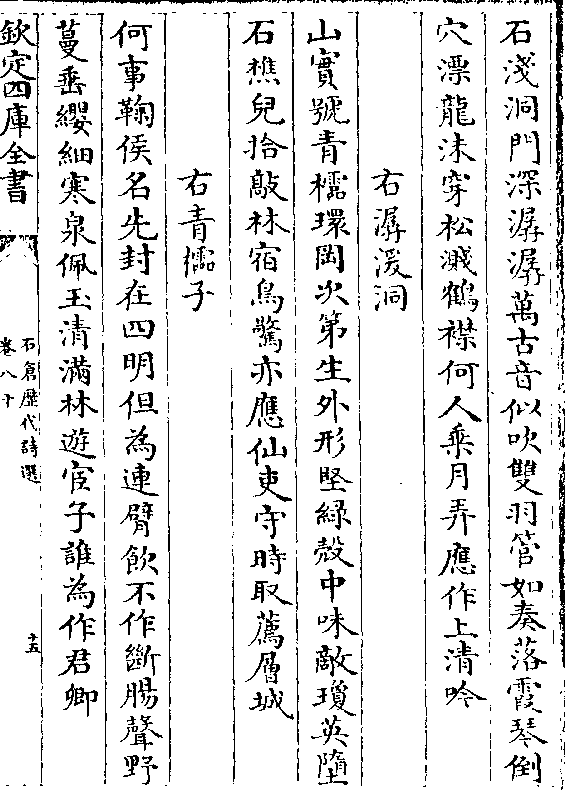 石淺洞門深潺潺萬古音似吹雙羽管如奏落霞琴倒
穴漂龍沫穿松濺鶴襟何人乘月弄應作上清吟
右潺湲洞
山實號青櫺環岡次第生外形堅綠殼中味敵瓊英墮
石樵兒拾敲林宿鳥驚亦應仙吏守時取薦層城
右青櫺子
何事鞠侯名先封在四明但為連臂飲不作斷腸聲野
蔓垂纓細寒泉佩玉清滿林遊宦子誰為作君卿
欽定四庫全書
石倉歷代詩選
卷八十
十五